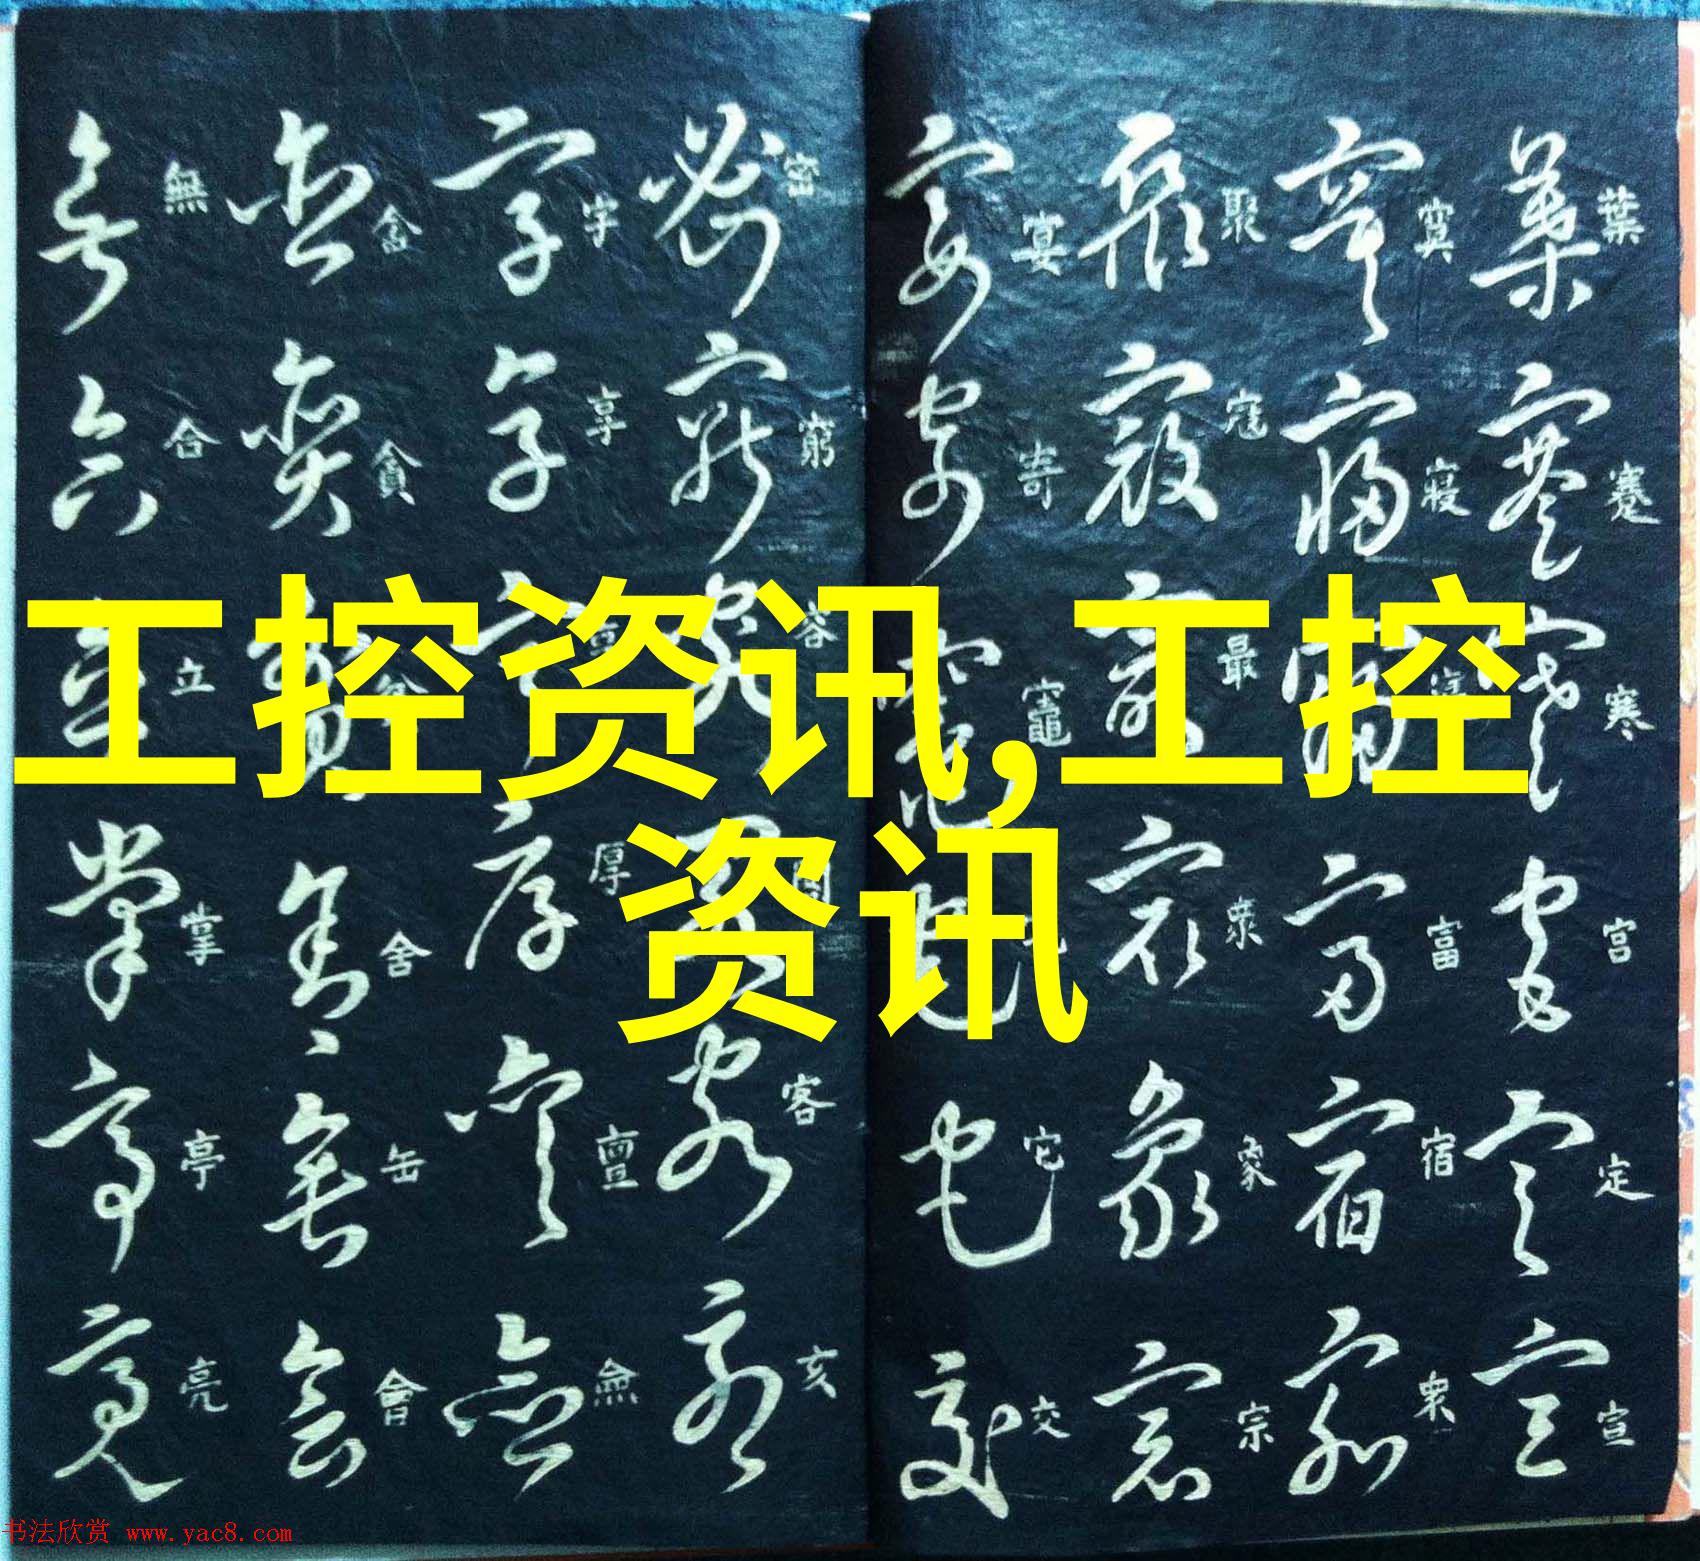 工控资讯,工控
资讯
葉蹇寒宫定宣
寞寢富宿衆
聚寇最衆家宗
宴寄竈它交
密窮容客亥
字享厚亶僉
貪舍缶會
無合立掌亭亮
书法欣赏 www.yac8.com